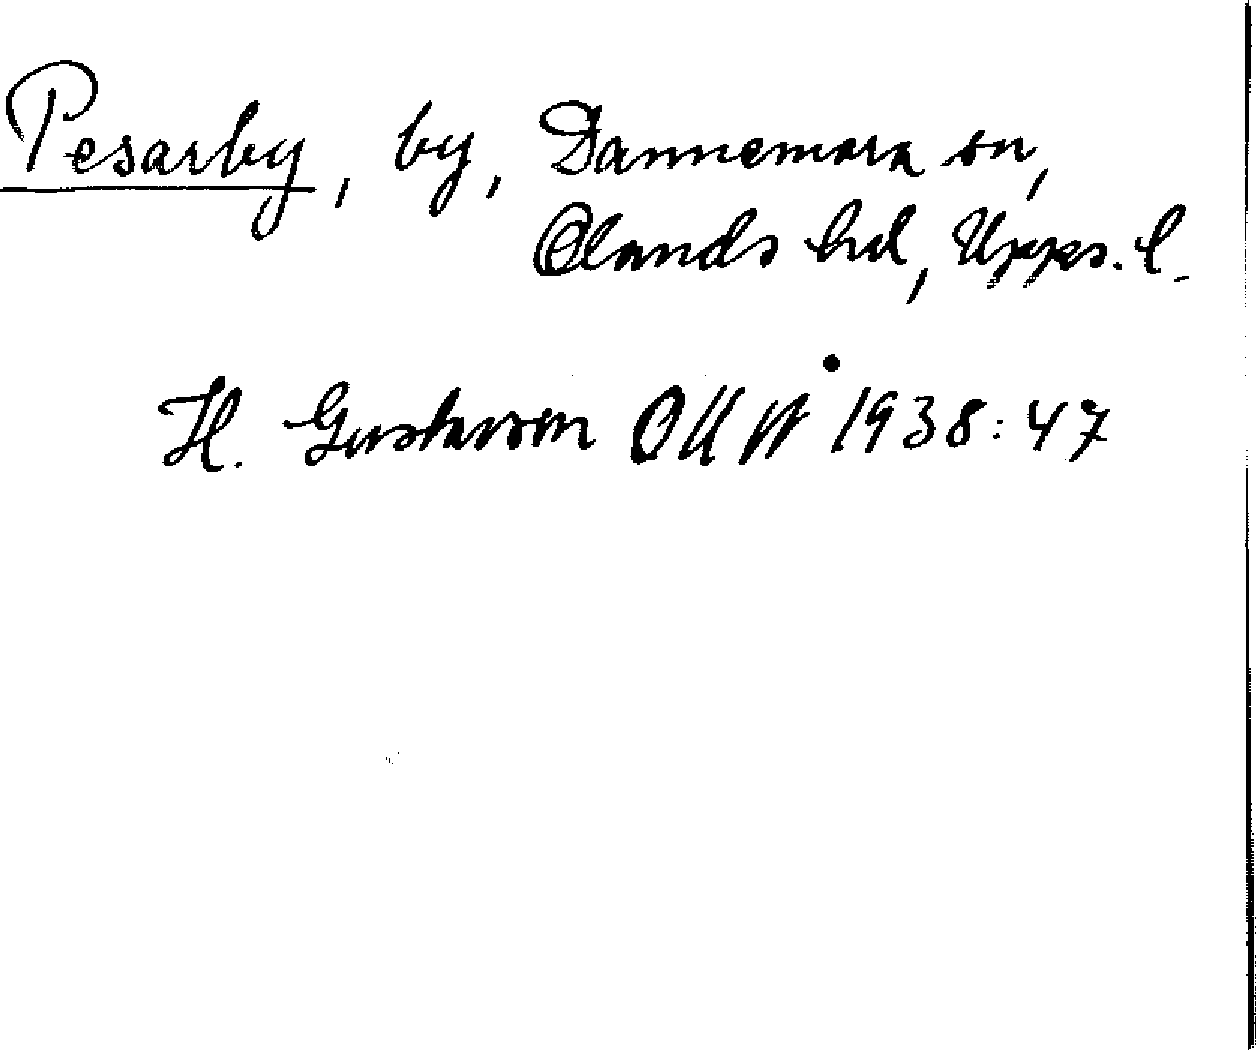 Pesarby, by, Dannemora sn,
Olands hd, Upps. l.
H. Gustavson OUÅ 1938:47